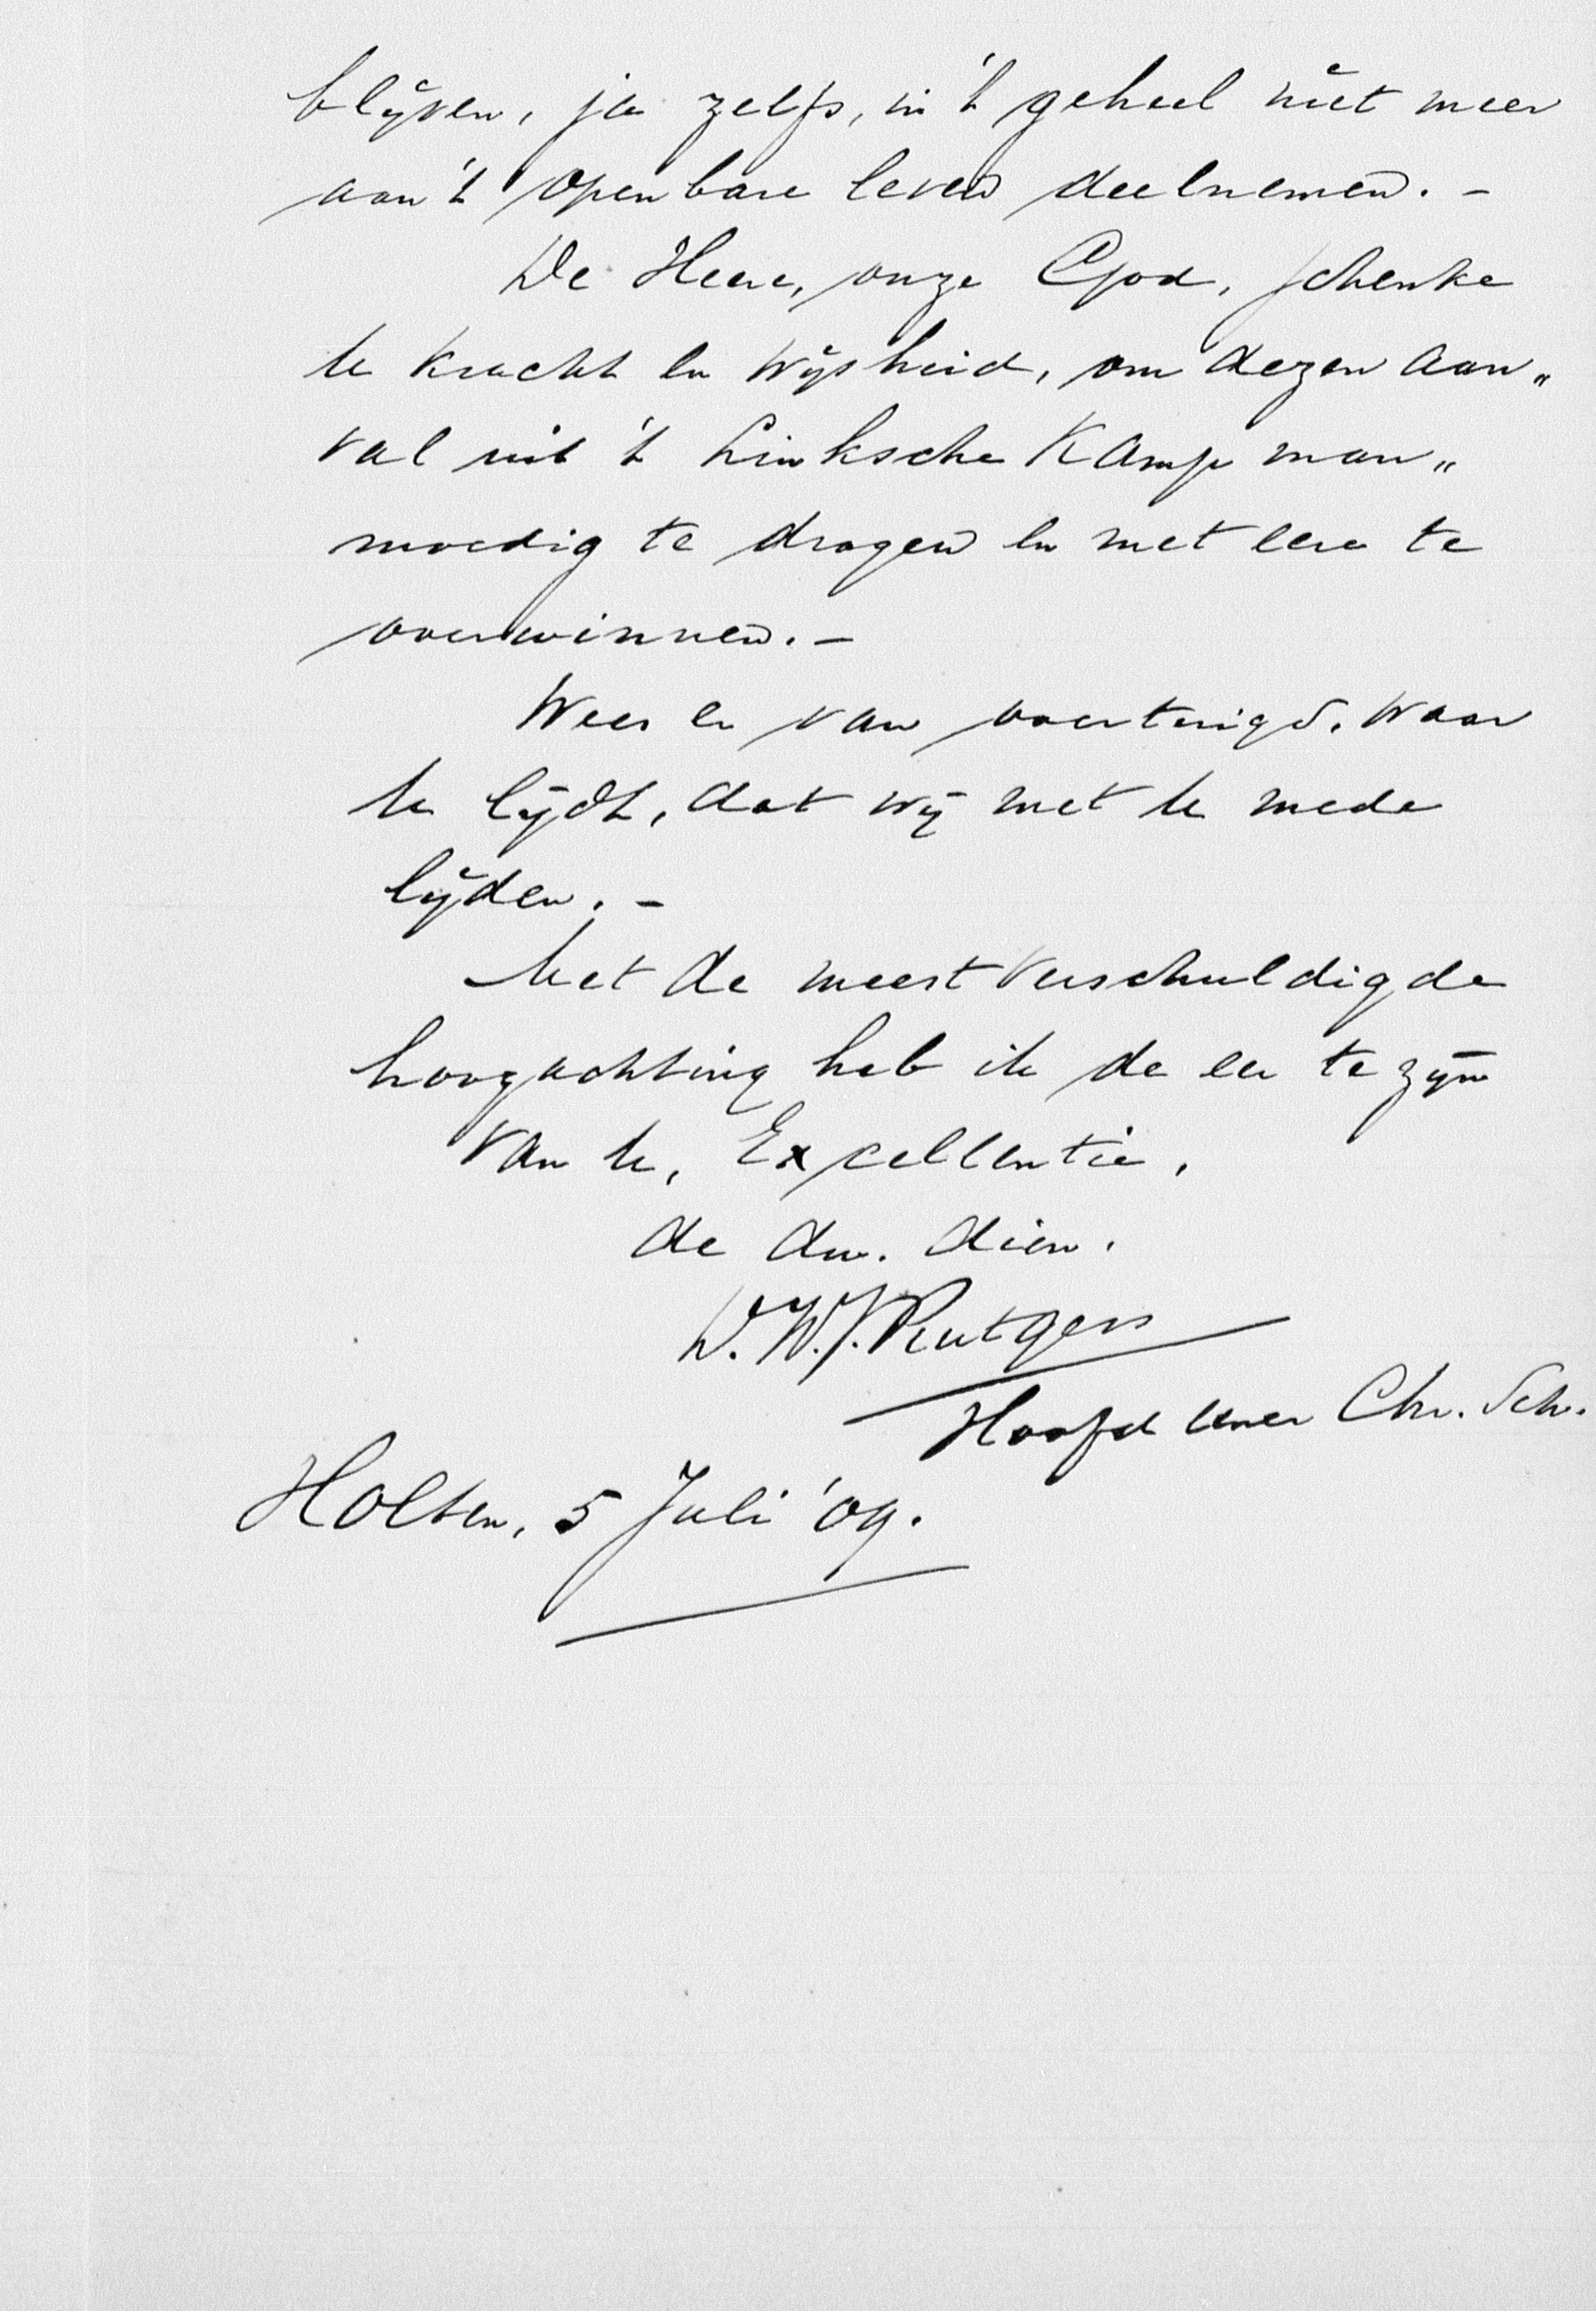 blijven, ja zelfs, in 't geheel niet meer
aan 't openbare leven deelnemen. -
De Heere, onze God, schenke
U kracht en wijsheid, om dezen aan„
val uit 't Linksche Kamp man„
moedig te dragen en met eere te
overwinnen. -
Wees er van overtuigd, waar
U lijdt, dat wij met U mede
lijden. -
Met de meest verschuldigde
hoogachting heb ik de eer te zijn
van U, Excellentie,
de dw. dien.
D. W. J. Rutgers
Hoofd eener Chr. Sch.
Holten, 5 Juli '09.